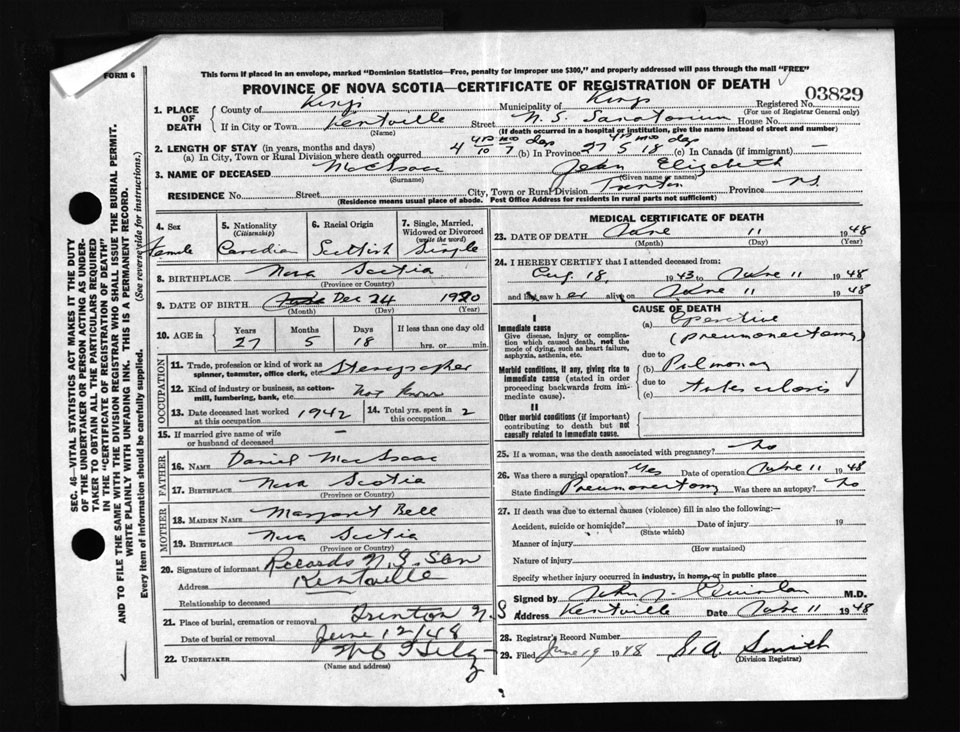 FORM 6
This form if placed in an envelope, marked "Dominion Statistics—Free, penalty for improper use $300," and properly addressed will pass through the mail "FREE"
PROVINCE OF NOVA SCOTIA—CERTIFICATE OF REGISTRATION OF DEATH
03829
1. PLACE OF DEATH County of Kings Municipality of Kings Registered No.
(For use of Registrar General only)
If in City or Town Kentville Street N. S. Sanatorium House No.
(Name) (If death occurred in a hospital or institution, give the name instead of street and number)
2. LENGTH OF STAY (in years, months and days)
(a) In City, Town or Rural Division where death occurred 4 yrs 10 mos 7 days (b) In Province 27 yrs 5 mos 18 days (c) In Canada (if immigrant) —
3. NAME OF DECEASED MacIsaac Jean Elizabeth
(Surname) (Given name or names)
RESIDENCE No. Street City, Town or Rural Division Trenton Province N.S.
(Residence means usual place of abode. Post Office Address for residents in rural parts not sufficient)
4. Sex Female
5. Nationality (Citizenship) Canadian
6. Racial Origin Scottish
7. Single, Married, Widowed or Divorced (write the word) Single
8. BIRTHPLACE Nova Scotia
(Province or Country)
9. DATE OF BIRTH Dec 24 1920
(Month) (Day) (Year)
10. AGE in Years 27 Months 5 Days 18 If less than one day old hrs. or min.
OCCUPATION
11. Trade, profession or kind of work as spinner, teamster, office clerk, etc. Stenographer
12. Kind of industry or business, as cotton-mill, lumbering, bank, etc. Not Known
13. Date deceased last worked at this occupation 1942 14. Total yrs. spent in this occupation 2
15. If married give name of wife or husband of deceased —
FATHER
16. NAME Daniel MacIsaac
17. BIRTHPLACE Nova Scotia
(Province or Country)
MOTHER
18. MAIDEN NAME Margaret Bell
19. BIRTHPLACE Nova Scotia
(Province or Country)
20. Signature of informant Records N. S. San
Address Kentville
Relationship to deceased
21. Place of burial, cremation or removal Trenton N. S
Date of burial or removal June 12/48
22. UNDERTAKER
(Name and address)
MEDICAL CERTIFICATE OF DEATH
23. DATE OF DEATH June 11 1948
(Month) (Day) (Year)
24. I HEREBY CERTIFY that I attended deceased from:
Aug. 18, 1943 to June 11 1948
and last saw her alive on June 11 1948
CAUSE OF DEATH
I
Immediate cause
Give disease, injury or complication which caused death, not the mode of dying, such as heart failure, asphyxia, asthenia, etc.
(a) Operative (Pneumonectomy)
due to
Morbid conditions, if any, giving rise to immediate cause (stated in order proceeding backwards from immediate cause).
(b) Pulmonary
due to
(c) tuberculosis
II
Other morbid conditions (if important) contributing to death but not causally related to immediate cause.
25. If a woman, was the death associated with pregnancy? No
26. Was there a surgical operation? Yes Date of operation June 11 1948
State finding Pneumonectomy Was there an autopsy? No
27. If death was due to external causes (violence) fill in also the following:—
Accident, suicide or homicide? Date of injury 19
(State which)
Manner of injury
(How sustained)
Nature of injury
Specify whether injury occurred in industry, in home, or in public place
Signed by John J. Quinlan M.D.
Address Kentville Date June 11 1948
28. Registrar's Record Number
29. Filed June 19 1948 S. A. Smith
(Division Registrar)
SEC. 46—VITAL STATISTICS ACT MAKES IT THE DUTY
OF THE UNDERTAKER OR PERSON ACTING AS UNDER-
TAKER TO OBTAIN ALL THE PARTICULARS REQUIRED
IN THE "CERTIFICATE OF REGISTRATION OF DEATH"
AND TO FILE THE SAME WITH THE DIVISION REGISTRAR WHO SHALL ISSUE THE BURIAL PERMIT.
WRITE PLAINLY WITH UNFADING INK. THIS IS A PERMANENT RECORD.
Every item of information should be carefully supplied. (See reverse side for instructions.)